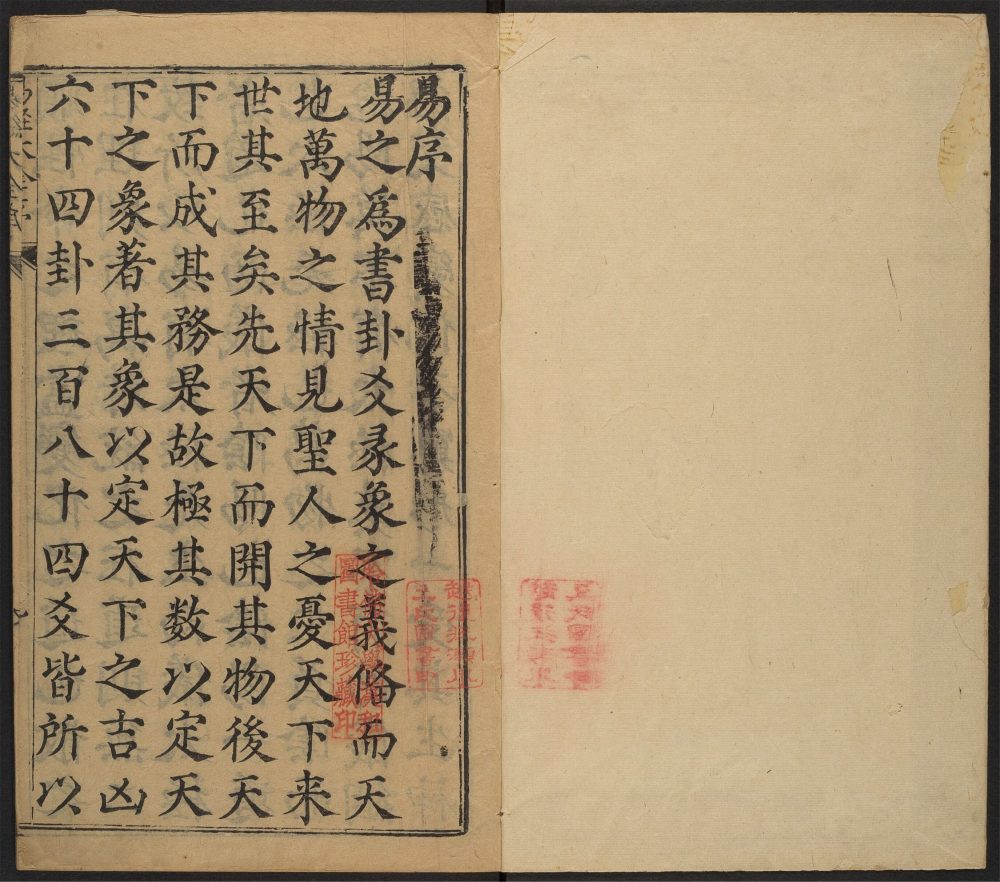 易序
易之爲書卦爻彖象之義俻而天
地萬物之情見聖人之憂天下来
世其至矣先天下而開其物後天
下而成其務是故極其数以定天
下之象著其象以定天下之吉凶
六十四卦三百八十四爻皆所以
圖書館珍藏印